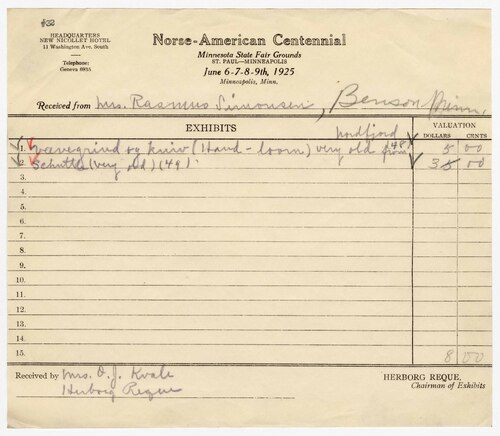 HEADQUARTERS
NEW NICOLLET HOTEL
11 Washington Ave. South
Telephone:
Geneva 6935
Norse-American Centennial
Minnesota State Fair Grounds
ST. PAUL—MINNEAPOLIS
June 6-7-8-9th, 1925
Minneapolis, Minn.
Received from Mrs. Rasmus Simonsen, Benson Minn.
EXHIBITS
VALUATION
DOLLARS CENTS
nordfjord
1. Vavegrind og kniv (Hand-loom) very old from (48) 5 00
2. Schuttle (very old) (49). 3 00
3.
4.
5.
6.
7.
8.
9.
10.
11.
12.
13.
14.
15. 8 00
Received by Mrs. O. J. Kvale
Herborg Reque
HERBORG REQUE.
Chairman of Exhibits